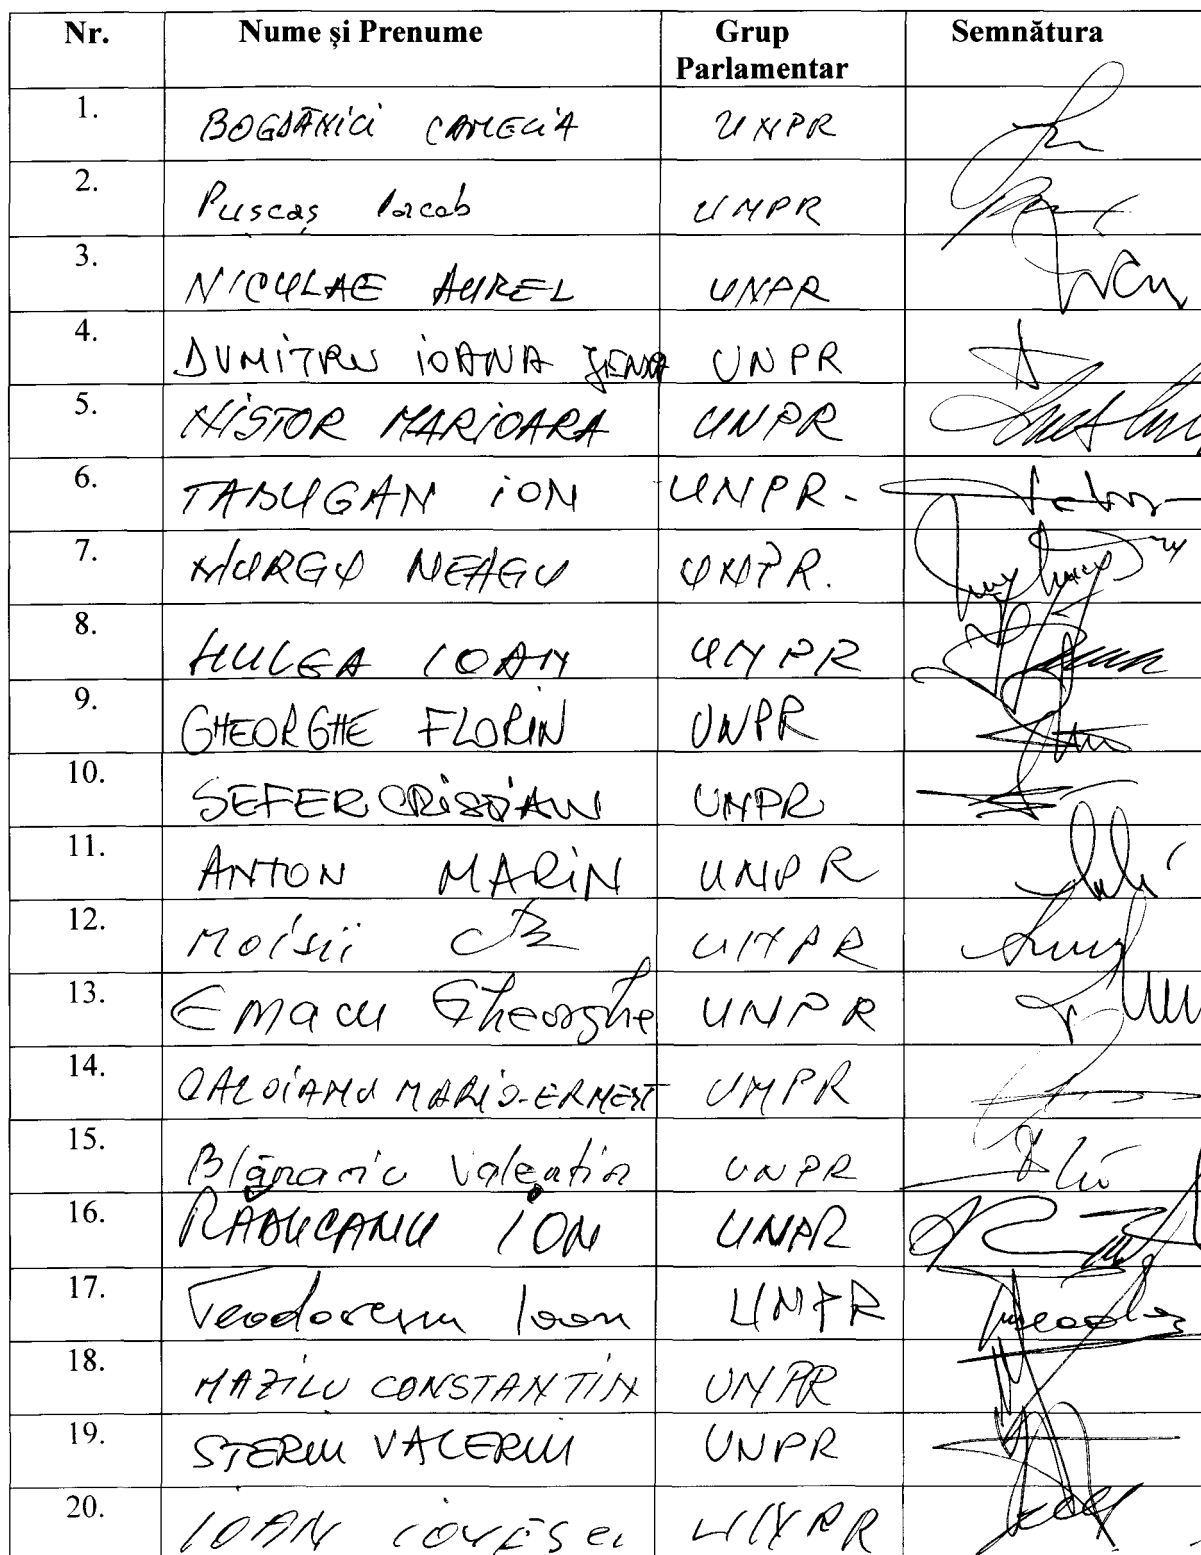 Nr. Nume și Prenume Grup Parlamentar Semnătura
1. BOGDĂNICI CAMELIA UNPR
2. Pușcaș Iacob UNPR
3. NICULAE AUREL UNPR
4. DUMITRU IOANA JENA UNPR
5. NISTOR MARIOARA UNPR
6. TABUGAN ION UNPR.
7. MURGU NEAGU UNPR.
8. HULEA IOAN UNPR
9. GHEORGHE FLORIN UNPR
10. SEFER CRISTIAN UNPR
11. ANTON MARIN UNPR
12. Moisii UNPR
13. Emacu Gheorghe UNPR
14. CALOIANU MARIO-ERNEST UNPR
15. Blănariu Valentin UNPR
16. RĂDUCANU ION UNPR
17. Teodorescu Ioan UNPR
18. MAZILU CONSTANTIN UNPR
19. STERIU VALERIU UNPR
20. IOAN UNPR